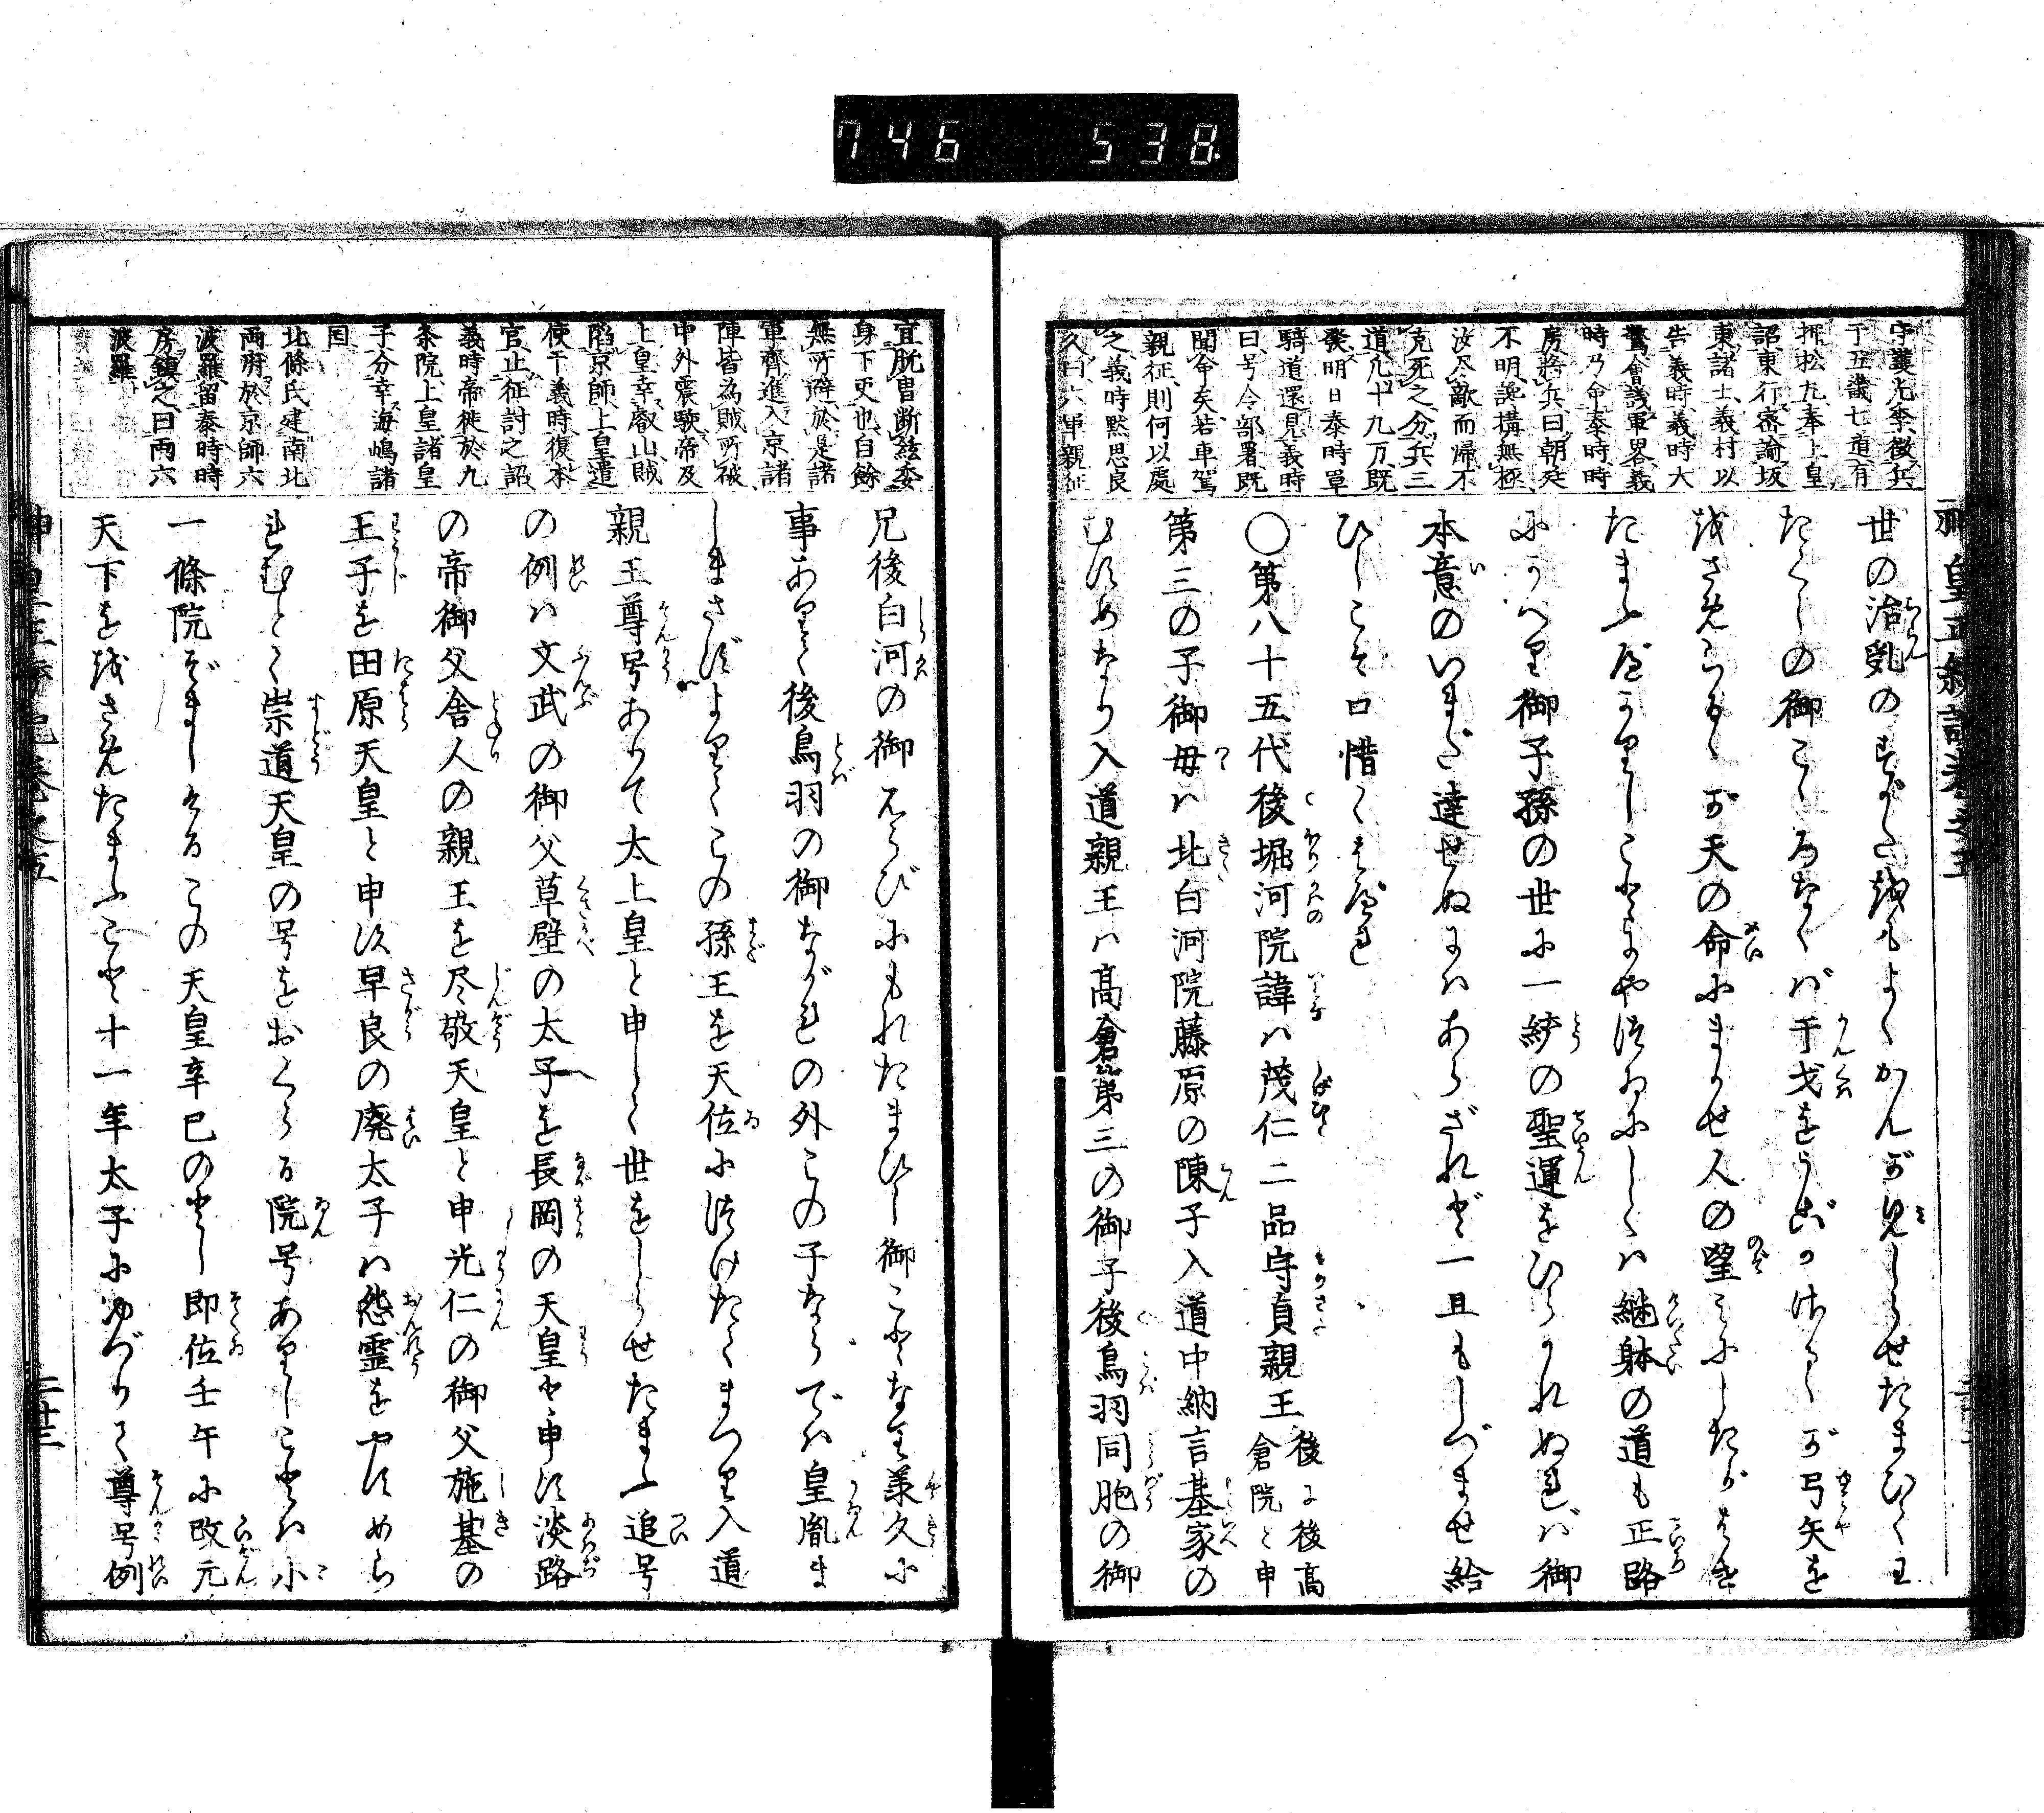 746 538
守護光季、徴兵
于五畿七道、有
押松九奉上皇
詔、東行密諭坂
東諸士、義村以
告義時、義時大
驚会議軍略、義
時乃命泰時時
房将兵曰、朝廷
不明、讒構無極、
汝尽敵而帰不
克死之、分兵三
道凡十九万、既
発明日泰時単
騎道還見義時
曰、号令部署既
聞命矣、若車駕
親征、則何以處
之、義時黙思良
久曰、六軍親征
世の治乱のすがたをもよくかんがみしらせたまひて王
たゞしの御こゝろならば干戈をうごかさるゝか弓矢を
おさめらるゝか天の命にまかせ人の望にしたがはせ
たまふべかりしことにやつゐにしては継躰の道も正路
にかへり御子孫の世に一統の聖運をひらかれぬれば御
本意のいまだ達せぬにはあらざれど一旦もしづませ給
ひしこそ口惜くはべれ
〇第八十五代後堀河院諱ハ茂仁二品守貞親王後に後高倉院と申
第三の子御母ハ北白河院藤原の陳子入道中納言基家の
むすめなり入道親王ハ高倉第三の御子後鳥羽同胞の御
神皇正統記巻之五
宜脱冑断絃委
身下吏也、自餘
無所辟、於是諸
軍齊進入京、諸
陣皆為賊所破、
中外震駭、帝及
上皇幸叡山、賊
陥京師、上皇遣
使于義時復本
官、止征討之詔、
義時帝徙於九
条院、上皇諸皇
子分幸海嶋諸
国
北條氏建南北
両府於京師六
波羅留泰時時
房鎮之、曰両六
波羅
兄後白河の御えらびにもれたまひし御ことなり承久に
事ありて後鳥羽の御ながれの外この子ならでハ皇胤ま
しまさずよりてこの孫王を天位につけたてまつり入道
親王尊号ありて太上皇と申して世をしらせたまふ追号
の例ハ文武の御父草壁の太子を長岡の天皇と申す淡路
の帝御父舎人の親王を尽敬天皇と申光仁の御父施基の
王子を田原天皇と申す早良の廃太子ハ怨霊をやすめら
れむとて崇道天皇の号をおくらる院号ありしことハ小
一條院ぞましけるこの天皇辛巳のとし即位壬午に改元
天下をおさめたまふこと十一年太子にゆづりて尊号例
神皇正統記巻之五
二十三